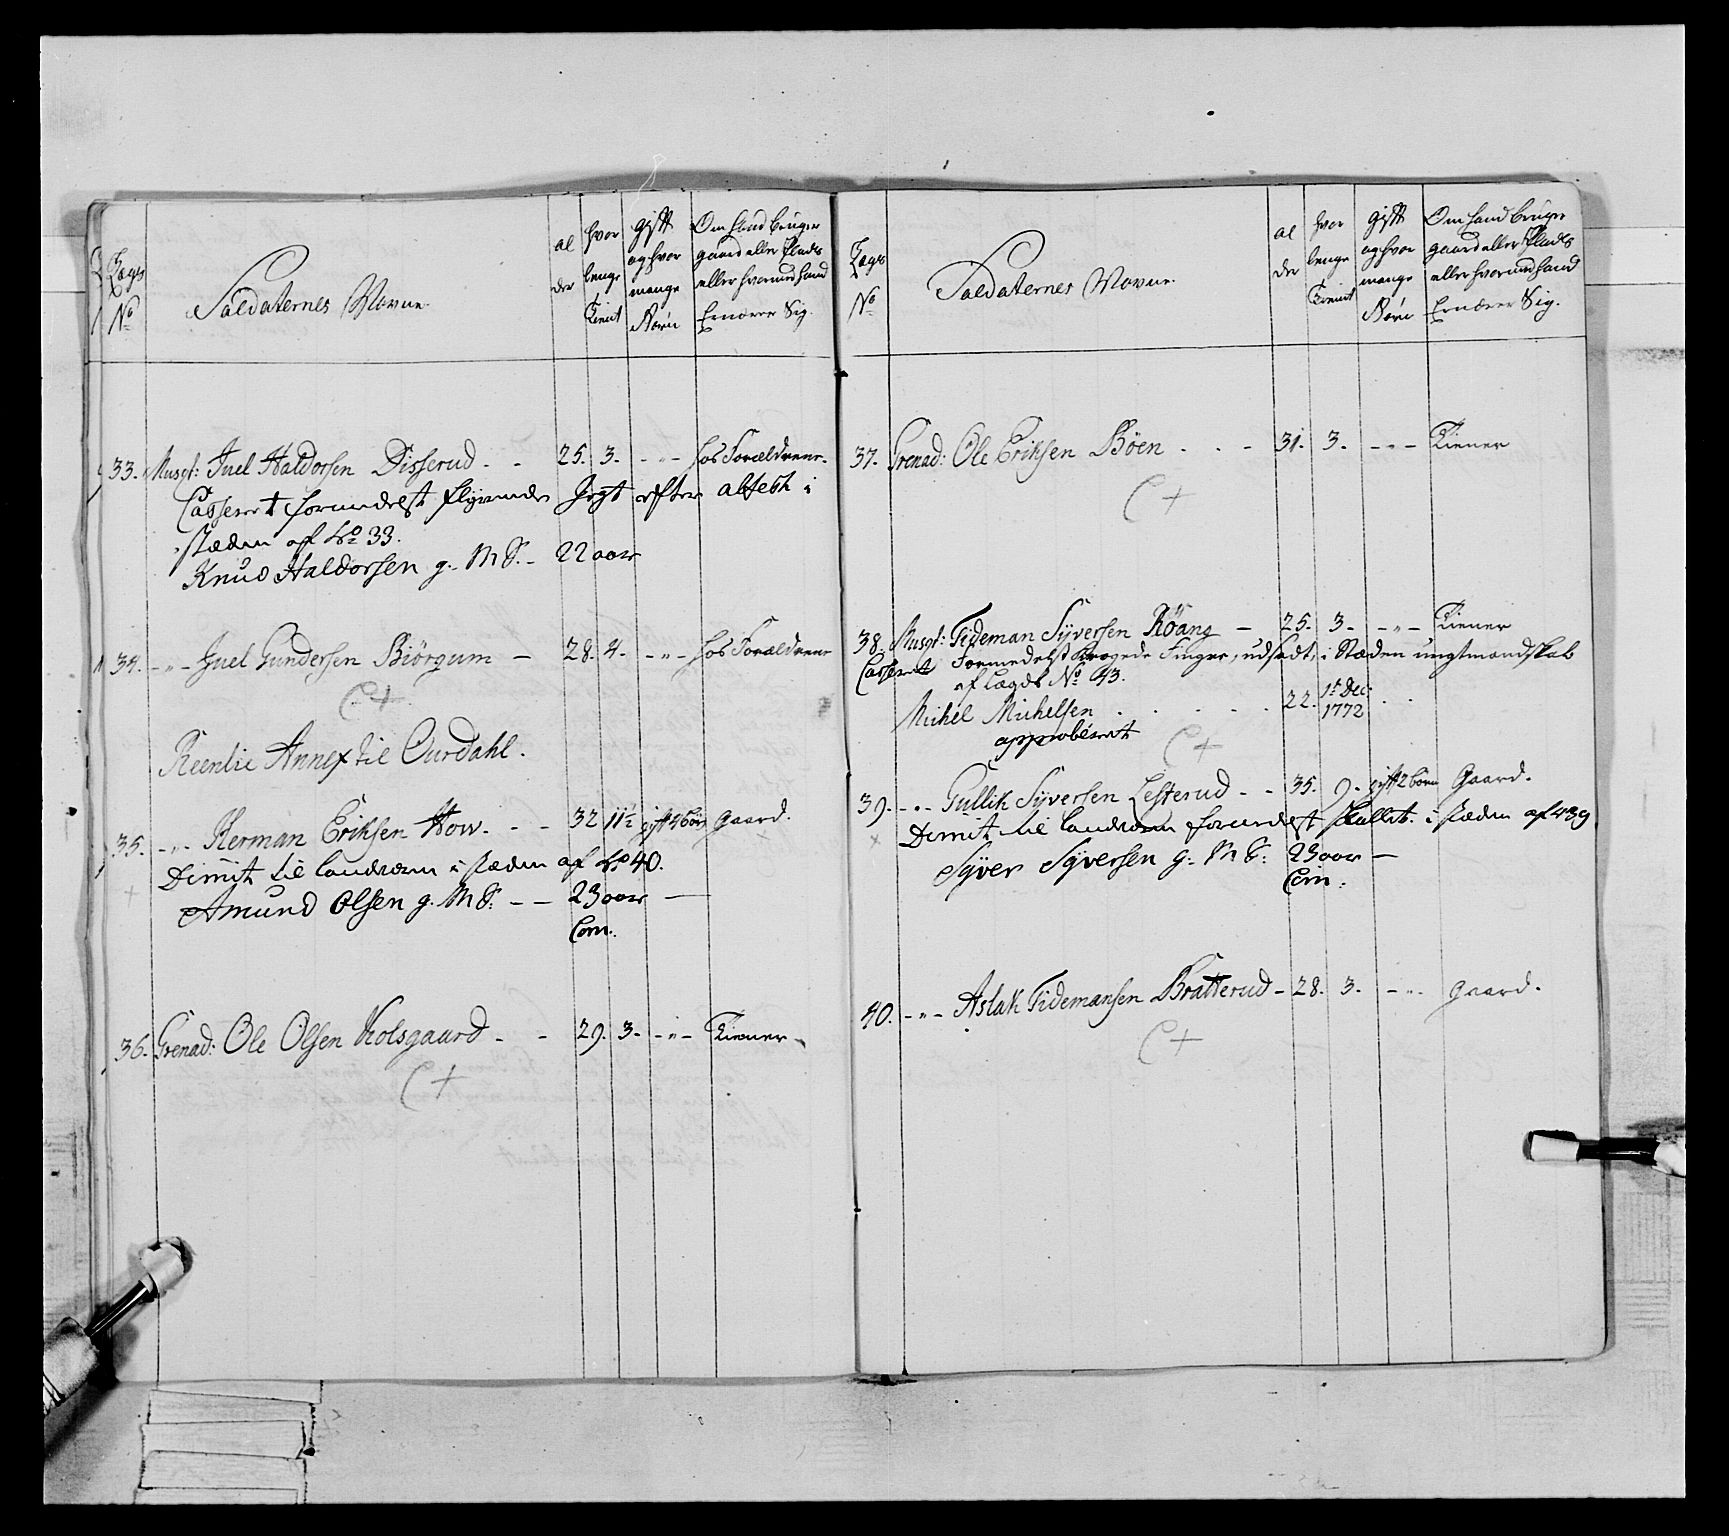 Lægs No
Soldaternes Navne.
al der
hvor lenge Tient
gift og hvor mange Børn
Om hand bruger gaard eller Plads eller hvormed hand Ernærer Sig.
33. Musqt: Juel Haldorsen Disserud - - 25. 3. - „ - hos Forældrene.
Casseret formedelst flyvende Gigt efter attest i
stæden af No 33.
Knud Haldorsen g. M S. - 22 aar
34. - „ - Juel Gundersen Biörgum - 28. 4. - „ - hos Forældrene
C +
Reenlie Annex til Ourdahl.
35. - „ - Herman Eriksen How. - - 32 11½ gift 4 börn Gaard.
Dimit til landværn i stæden af No 40.
Amund Olsen g. M S: - - 23 aar —
Com:
36. Grenad: Ole Olsen Kolsgaard - - 29. 3. - „ - Tiener
C +
Lægs No
Soldaternes Navne.
al der
hvor lenge Tient
gift og hvor mange Börn
Om hand bruger gaard eller Plads eller hvormed hand Ernærer Sig.
37. Grenad: Ole Eriksen Böen . . - 31. 3. - „ - Tiener
C +
38. Musqt: Tideman Syversen Röang - 25. 3. - „ - Tiener
Casseret Formedelst Krogede Finger, udsadt, i Stæden ungtmandskab
af Lægds No 43.
Michel Michelsen . . . . . 22. 1t Dec: 1772
approberet
C +
39. - „ - Gullik Syversen Lesterud - - 35. 9. gift 2 börn Gaard.
Dimit til landværn formedelst skallet. i stæden af 39
Syver Syversen g. M S: 23 aar —
Com:
40. - „ - Aslak Tidemansen Bratterud - 28. 3. - „ - gaard.
C +